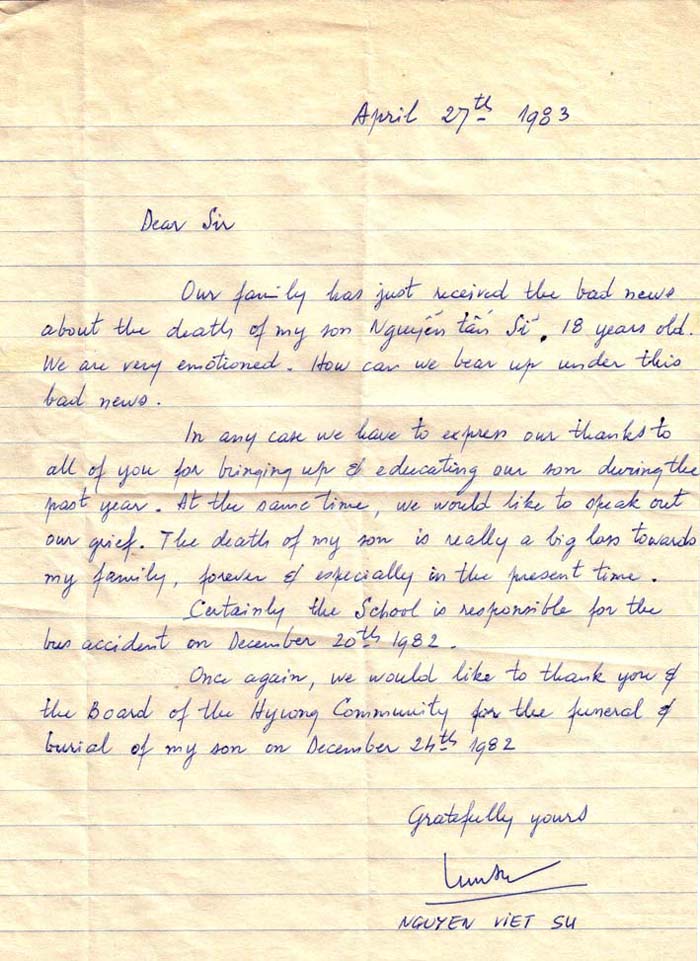 April 27th 1983
Dear Sir
Our family has just received the bad news
about the death of my son Nguyễn tấn Sĩ, 18 years old.
We are very emotioned. How can we bear up under this
bad news.
In any case we have to express our thanks to
all of you for bringing up & educating our son during the
past year. At the same time, we would like to speak out
our grief. The death of my son is really a big loss towards
my family, forever & especially in the present time.
Certainly the School is responsible for the
bus accident on December 20th 1982.
Once again, we would like to thank you &
the Board of the Hywong Community for the funeral &
burial of my son on December 24th 1982
Gratefully yours
NGUYEN VIET SU